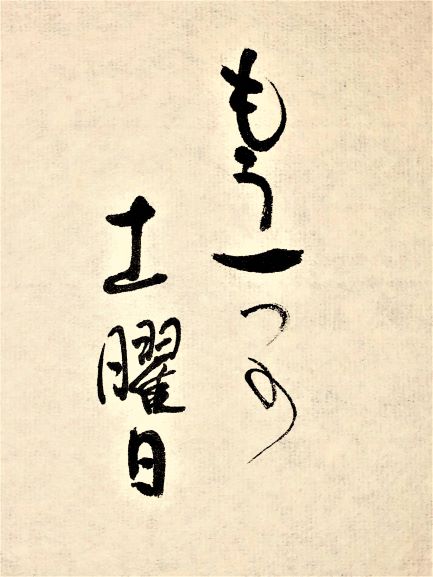 もう一つの
土曜日